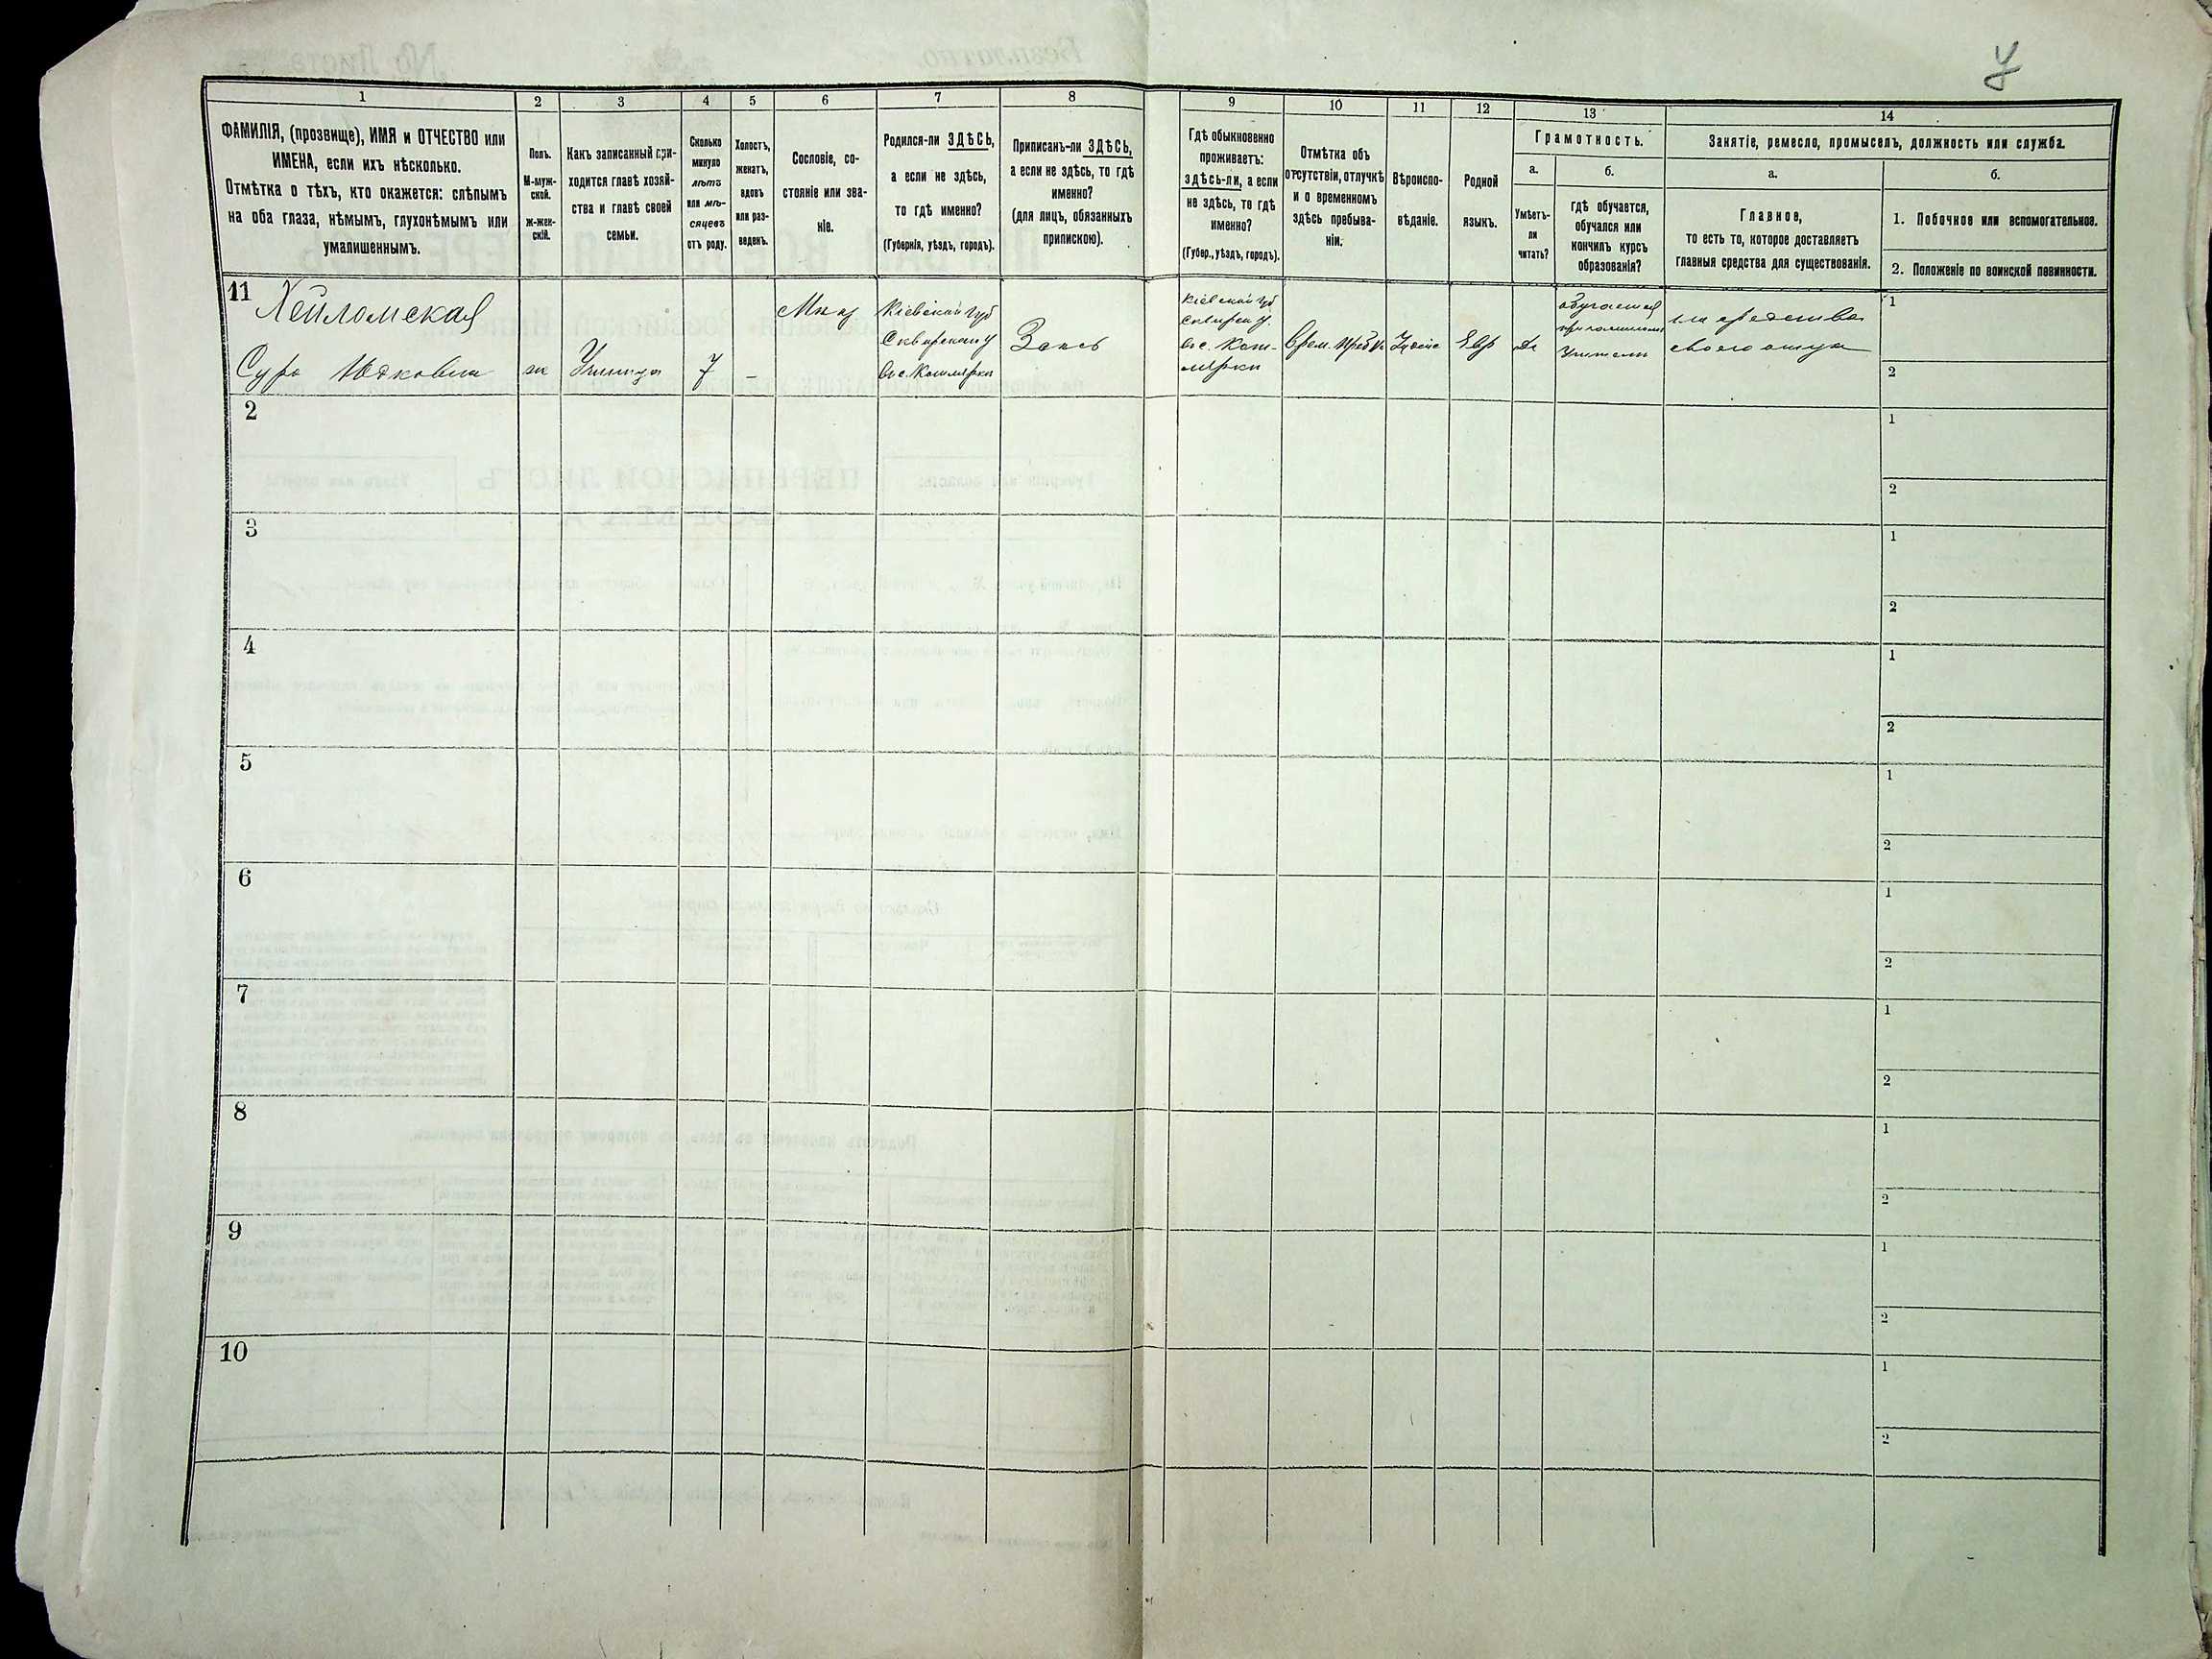 1
2
3
4
5
6
7
8
9
10
11
12
13
14
ФАМИЛІЯ, (прозвище), ИМЯ и ОТЧЕСТВО или
ИМЕНА, если ихъ нѣсколько.
Отмѣтка о тѣхъ, кто окажется: слѣпымъ
на оба глаза, нѣмымъ, глухонѣмымъ или
умалишеннымъ.
Полъ.
М-муж-
ской.
Ж-жен-
скій.
Какъ записанный при-
ходится главѣ хозяй-
ства и главѣ своей
семьи.
Сколько
минуло
лѣтъ
или мѣ-
сяцевъ
отъ роду.
Холостъ,
женатъ,
вдовъ
или раз-
веденъ.
Сословіе, со-
стояніе или зва-
ніе.
Родился-ли ЗДѢСЬ,
а если не здѣсь,
то гдѣ именно?
(Губернія, уѣздъ, городъ).
Приписанъ-ли ЗДѢСЬ,
а если не здѣсь, то гдѣ
именно?
(для лицъ, обязанныхъ
припискою).
Гдѣ обыкновенно
проживаетъ:
здѣсь-ли, а если
не здѣсь, то гдѣ
именно?
(Губер., уѣздъ, городъ).
Отмѣтка объ
отсутствіи, отлучкѣ
и о временномъ
здѣсь пребыва-
ніи.
Вѣроиспо-
вѣданіе.
Родной
языкъ.
Грамотность.
а.
Умѣетъ-
ли
читать?
б.
гдѣ обучается,
обучался или
кончилъ курсъ
образованія?
Занятіе, ремесло, промыселъ, должность или служба.
а.
Главное,
то есть то, которое доставляетъ
главныя средства для существованія.
б.
1. Побочное или вспомогательное.
2. Положеніе по воинской повинности.
11
Хейломская
Сура
ж
Ученица
7
–
Мѣщ
Кіевской губ
Сквирскаго у
Здѣсь
Кіевской губ
Сквирск у.
врем. преб.
Іудейс
Евр
да
обучается
учителя
на средства
своего отца
1
2
2
1
2
3
1
2
4
1
2
5
1
2
6
1
2
7
1
2
8
1
2
9
1
2
10
1
2